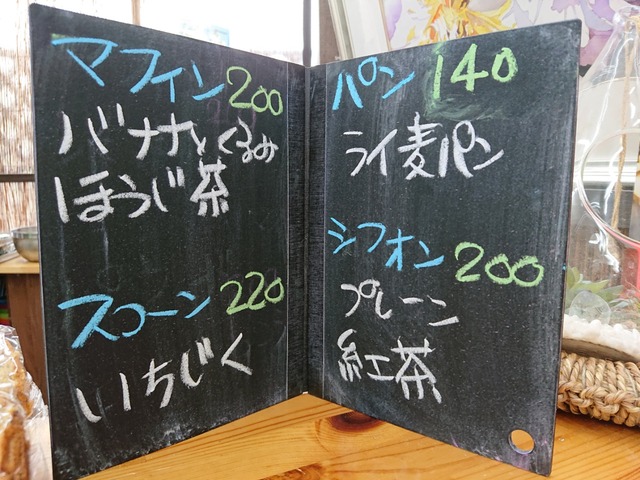 マフィン 200
バナナとくるみ
ほうじ茶
スコーン 220
いちじく
パン 140
ライ麦パン
シフォン 200
プレーン
紅茶